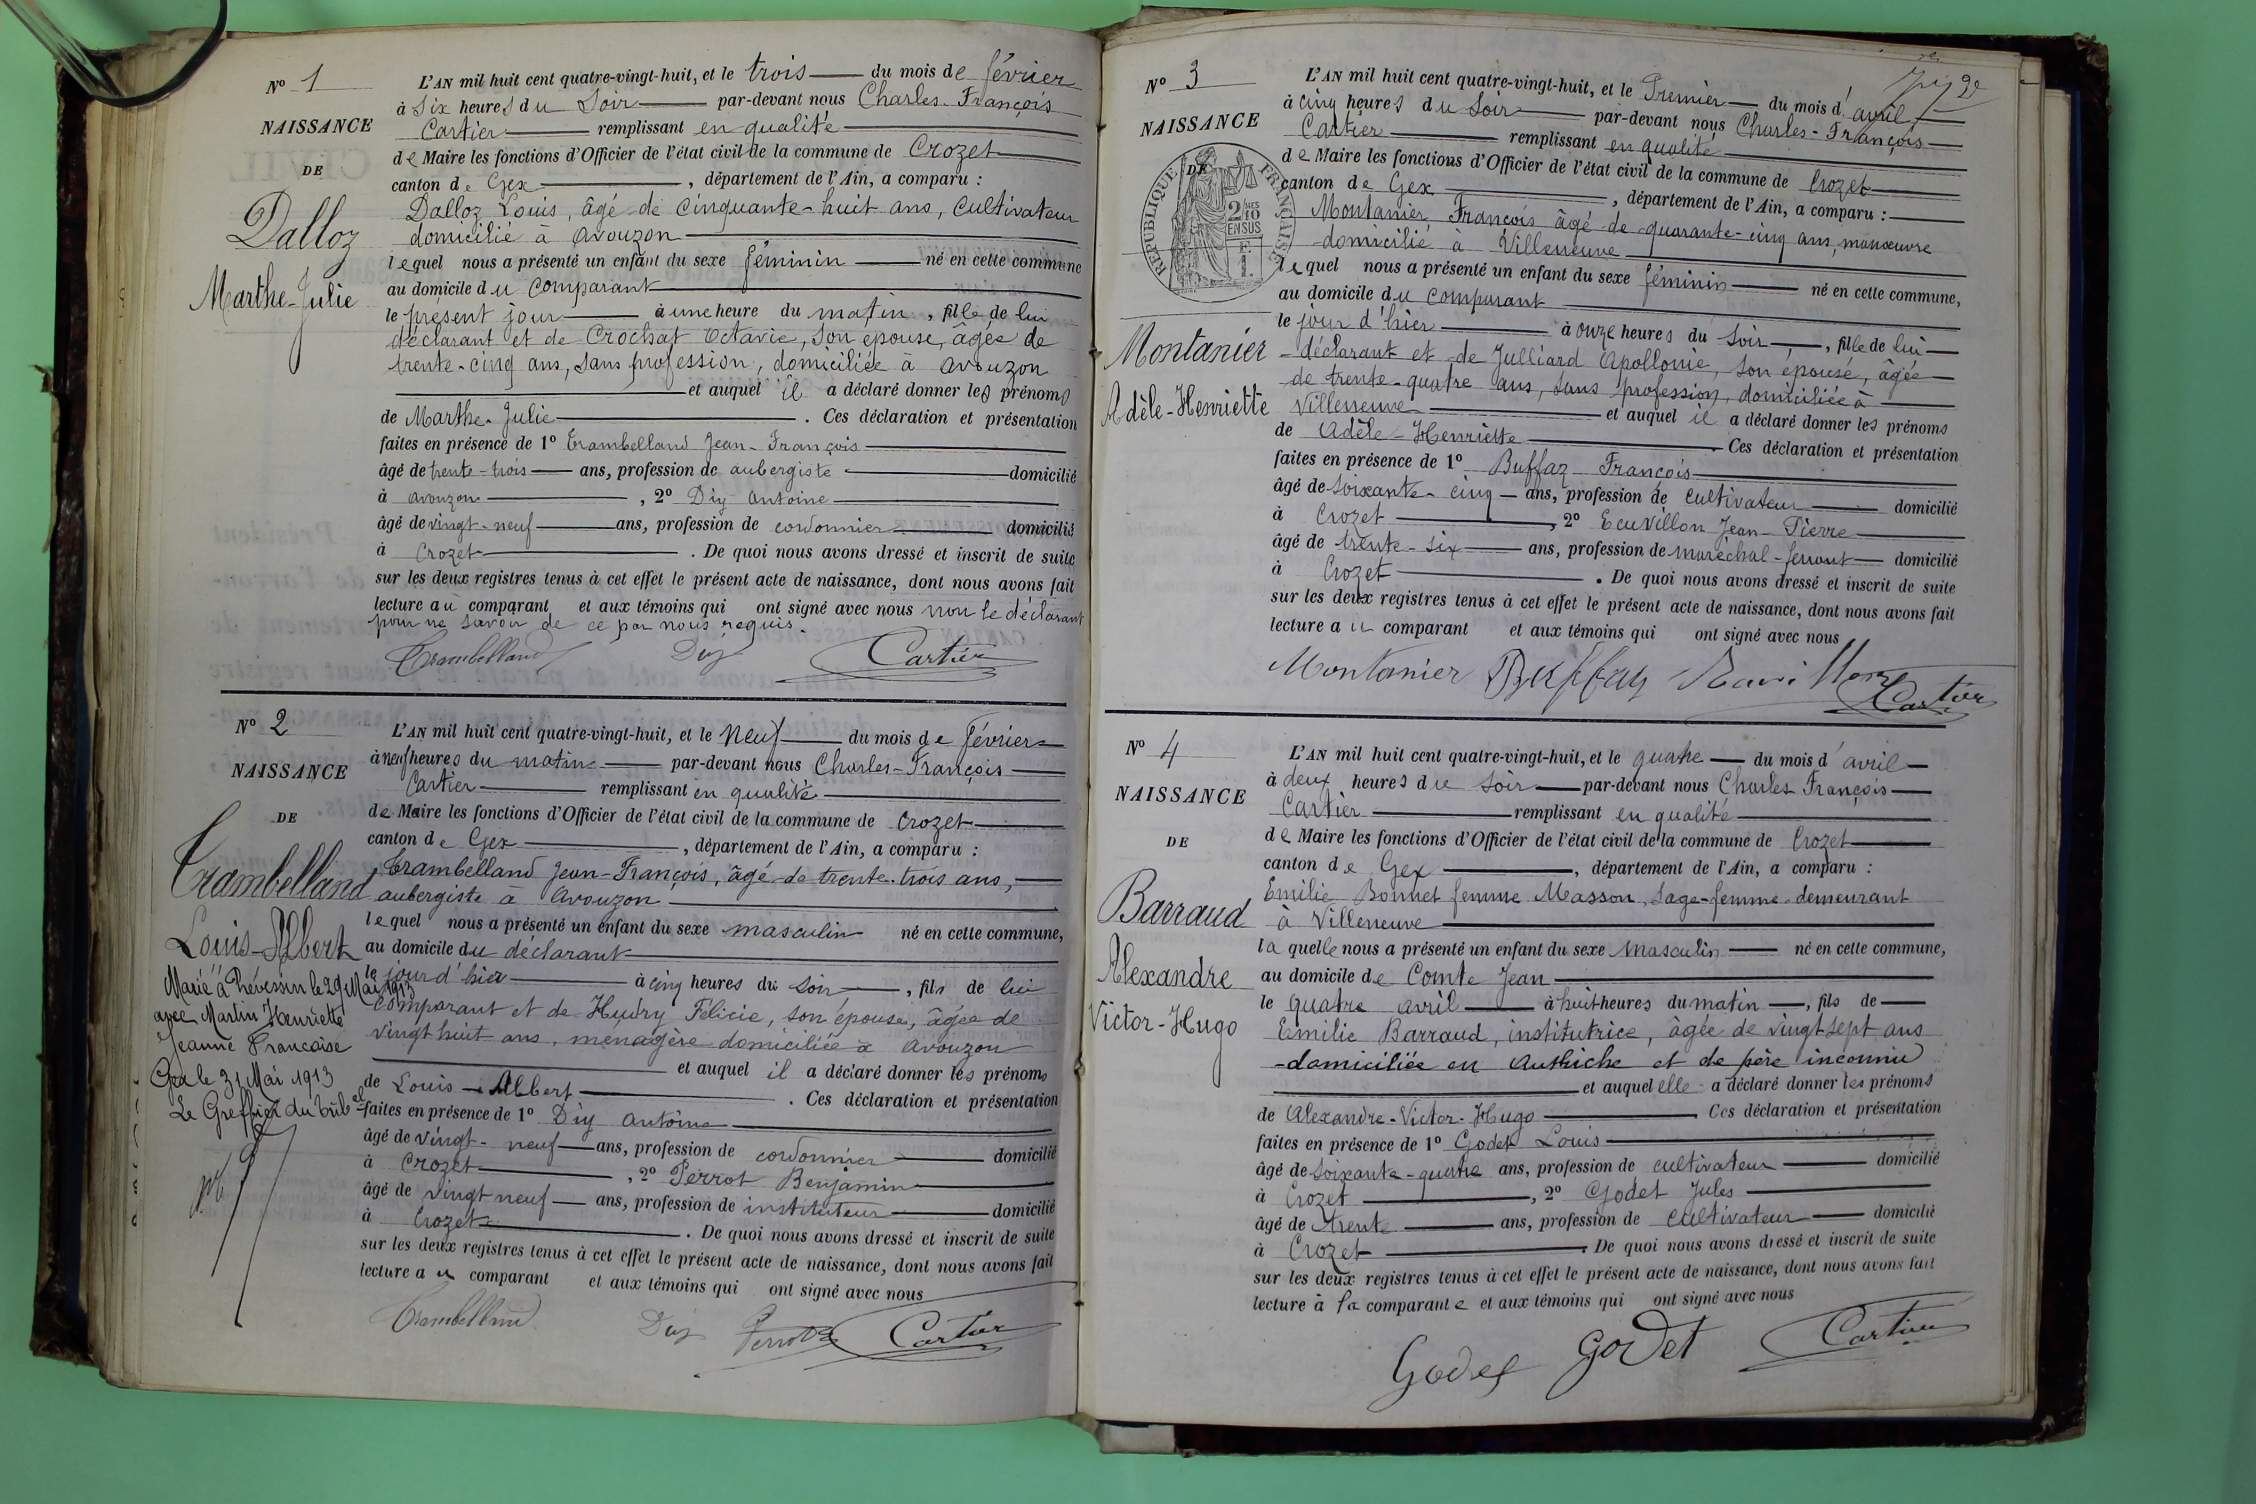 N° 1
NAISSANCE
DE
Dalloz
Marthe-Julie
L'AN mil huit cent quatre-vingt-huit, et le trois du mois de février
à six heures du Soir par-devant nous Charles-François
Cartier remplissant en qualité
de Maire les fonctions d'Officier de l'état civil de la commune de Crozet
canton de Gex, département de l'Ain, a comparu :
Dalloz Louis, âgé de cinquante-huit ans, cultivateur
domicilié à Avouzon
lequel nous a présenté un enfant du sexe féminin né en cette commune
au domicile du comparant
le présent jour à une heure du matin, fille de lui
déclarant et de Crochat Octavie, son épouse, âgée de
trente-cinq ans, sans profession, domiciliée à Avouzon
et auquel il a déclaré donner les prénoms
de Marthe-Julie. Ces déclaration et présentation
faites en présence de 1° Trambelland Jean-François
âgé de trente-trois ans, profession de aubergiste domicilié
à Avouzon, 2° Diy Antoine
âgé de vingt-neuf ans, profession de cordonnier domicilié
à Crozet. De quoi nous avons dressé et inscrit de suite
sur les deux registres tenus à cet effet le présent acte de naissance, dont nous avons fait
lecture au comparant et aux témoins qui ont signé avec nous non le déclarant
pour ne savoir de ce par nous requis.
Trambelland Diy Cartier
N° 2
NAISSANCE
DE
Trambelland
Louis-Albert
Marié à Prévessin le 29 Mai 1913
avec Martin Henriette
Jeanne Francoise
Gex le 31 Mai 1913
Le Greffier du trib el
L'AN mil huit cent quatre-vingt-huit, et le neuf du mois de février
à neuf heures du matin par-devant nous Charles-François
Cartier remplissant en qualité
de Maire les fonctions d'Officier de l'état civil de la commune de Crozet
canton de Gex, département de l'Ain, a comparu :
Trambelland Jean-François, âgé de trente-trois ans,
aubergiste à Avouzon
lequel nous a présenté un enfant du sexe masculin né en cette commune,
au domicile du déclarant
le jour d'hier à cinq heures du soir, fils de lui
comparant et de Hudry Félicie, son épouse, âgée de
vingt huit ans, ménagère domiciliée à Avouzon
et auquel il a déclaré donner les prénoms
de Louis-Albert. Ces déclaration et présentation
faites en présence de 1° Diy Antoine
âgé de vingt-neuf ans, profession de cordonnier domicilié
à Crozet, 2° Perrot Benjamin
âgé de vingt neuf ans, profession de instituteur domicilié
à Crozet. De quoi nous avons dressé et inscrit de suite
sur les deux registres tenus à cet effet le présent acte de naissance, dont nous avons fait
lecture au comparant et aux témoins qui ont signé avec nous
Trambelland Diy Perrot B Cartier
N° 3
NAISSANCE
DE
RÉPUBLIQUE FRANÇAISE
2/10
EN SUS
Montanier
Adèle-Henriette
L'AN mil huit cent quatre-vingt-huit, et le Premier du mois d'avril
à cinq heures du Soir par-devant nous Charles-François
Cartier remplissant en qualité
de Maire les fonctions d'Officier de l'état civil de la commune de Crozet
canton de Gex, département de l'Ain, a comparu :
Montanier François âgé de quarante-cinq ans, manœuvre
domicilié à Villeneuve
lequel nous a présenté un enfant du sexe féminin né en cette commune,
au domicile du comparant
le jour d'hier à onze heures du Soir, fille de lui
déclarant et de Julliard Apollonie, son épouse, âgée
de trente-quatre ans, sans profession, domiciliée à
Villeneuve et auquel il a déclaré donner les prénoms
de Adèle-Henriette. Ces déclaration et présentation
faites en présence de 1° Buffaz François
âgé de soixante-cinq ans, profession de cultivateur domicilié
à Crozet, 2° Ecuvillon Jean-Pierre
âgé de trente-six ans, profession de maréchal-ferrant domicilié
à Crozet. De quoi nous avons dressé et inscrit de suite
sur les deux registres tenus à cet effet le présent acte de naissance, dont nous avons fait
lecture au comparant et aux témoins qui ont signé avec nous
Montanier Buffaz Cartier
N° 4
NAISSANCE
DE
Barraud
Alexandre
Victor-Hugo
L'AN mil huit cent quatre-vingt-huit, et le quatre du mois d'avril
à deux heures du Soir par-devant nous Charles François
Cartier remplissant en qualité
de Maire les fonctions d'Officier de l'état civil de la commune de Crozet
canton de Gex, département de l'Ain, a comparu :
Emilie Bonnet femme Masson, Sage-femme demeurant
à Villeneuve
laquelle nous a présenté un enfant du sexe masculin né en cette commune,
au domicile de Comte Jean
le quatre avril à huit heures du matin, fils de
Emilie Barraud, institutrice, âgée de vingt sept ans
domiciliée en Autriche et de père inconnu
et auquel elle a déclaré donner les prénoms
de Alexandre-Victor-Hugo Ces déclaration et présentation
faites en présence de 1° Godet Louis
âgé de soixante-quatre ans, profession de cultivateur domicilié
à Crozet, 2° Godet Jules
âgé de trente ans, profession de cultivateur domicilié
à Crozet. De quoi nous avons dressé et inscrit de suite
sur les deux registres tenus à cet effet le présent acte de naissance, dont nous avons fait
lecture à la comparante et aux témoins qui ont signé avec nous
Godet Godet Cartier